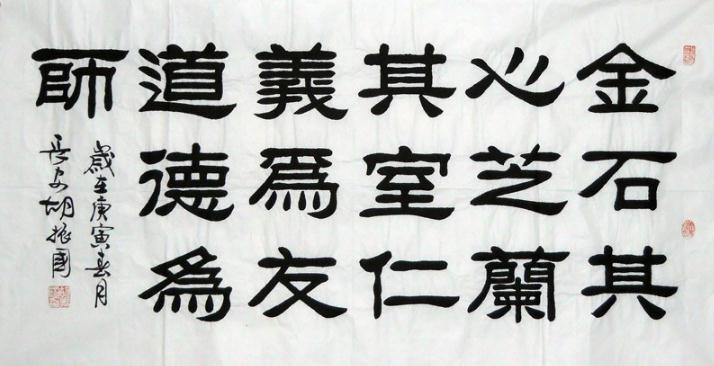 金石其
心芝蘭
其室仁
義爲友
道德爲
師
歲在庚寅春月
長安胡振國